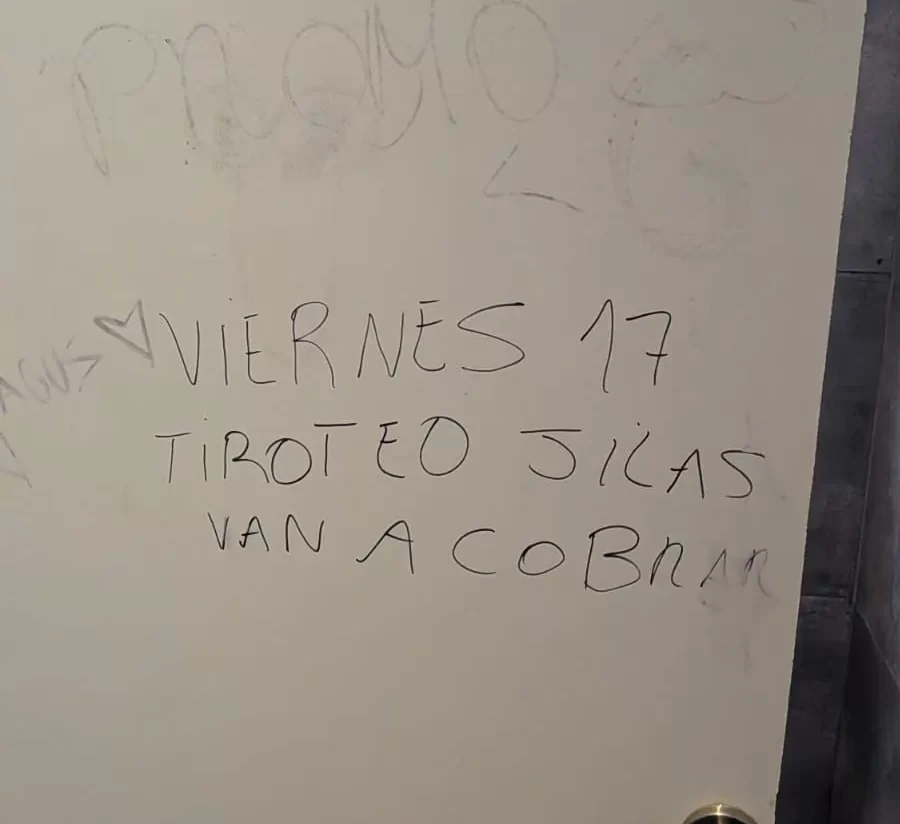 PROMO
AGUS
VIERNES 17
TIROTEO JILAS
VAN A COBRAR